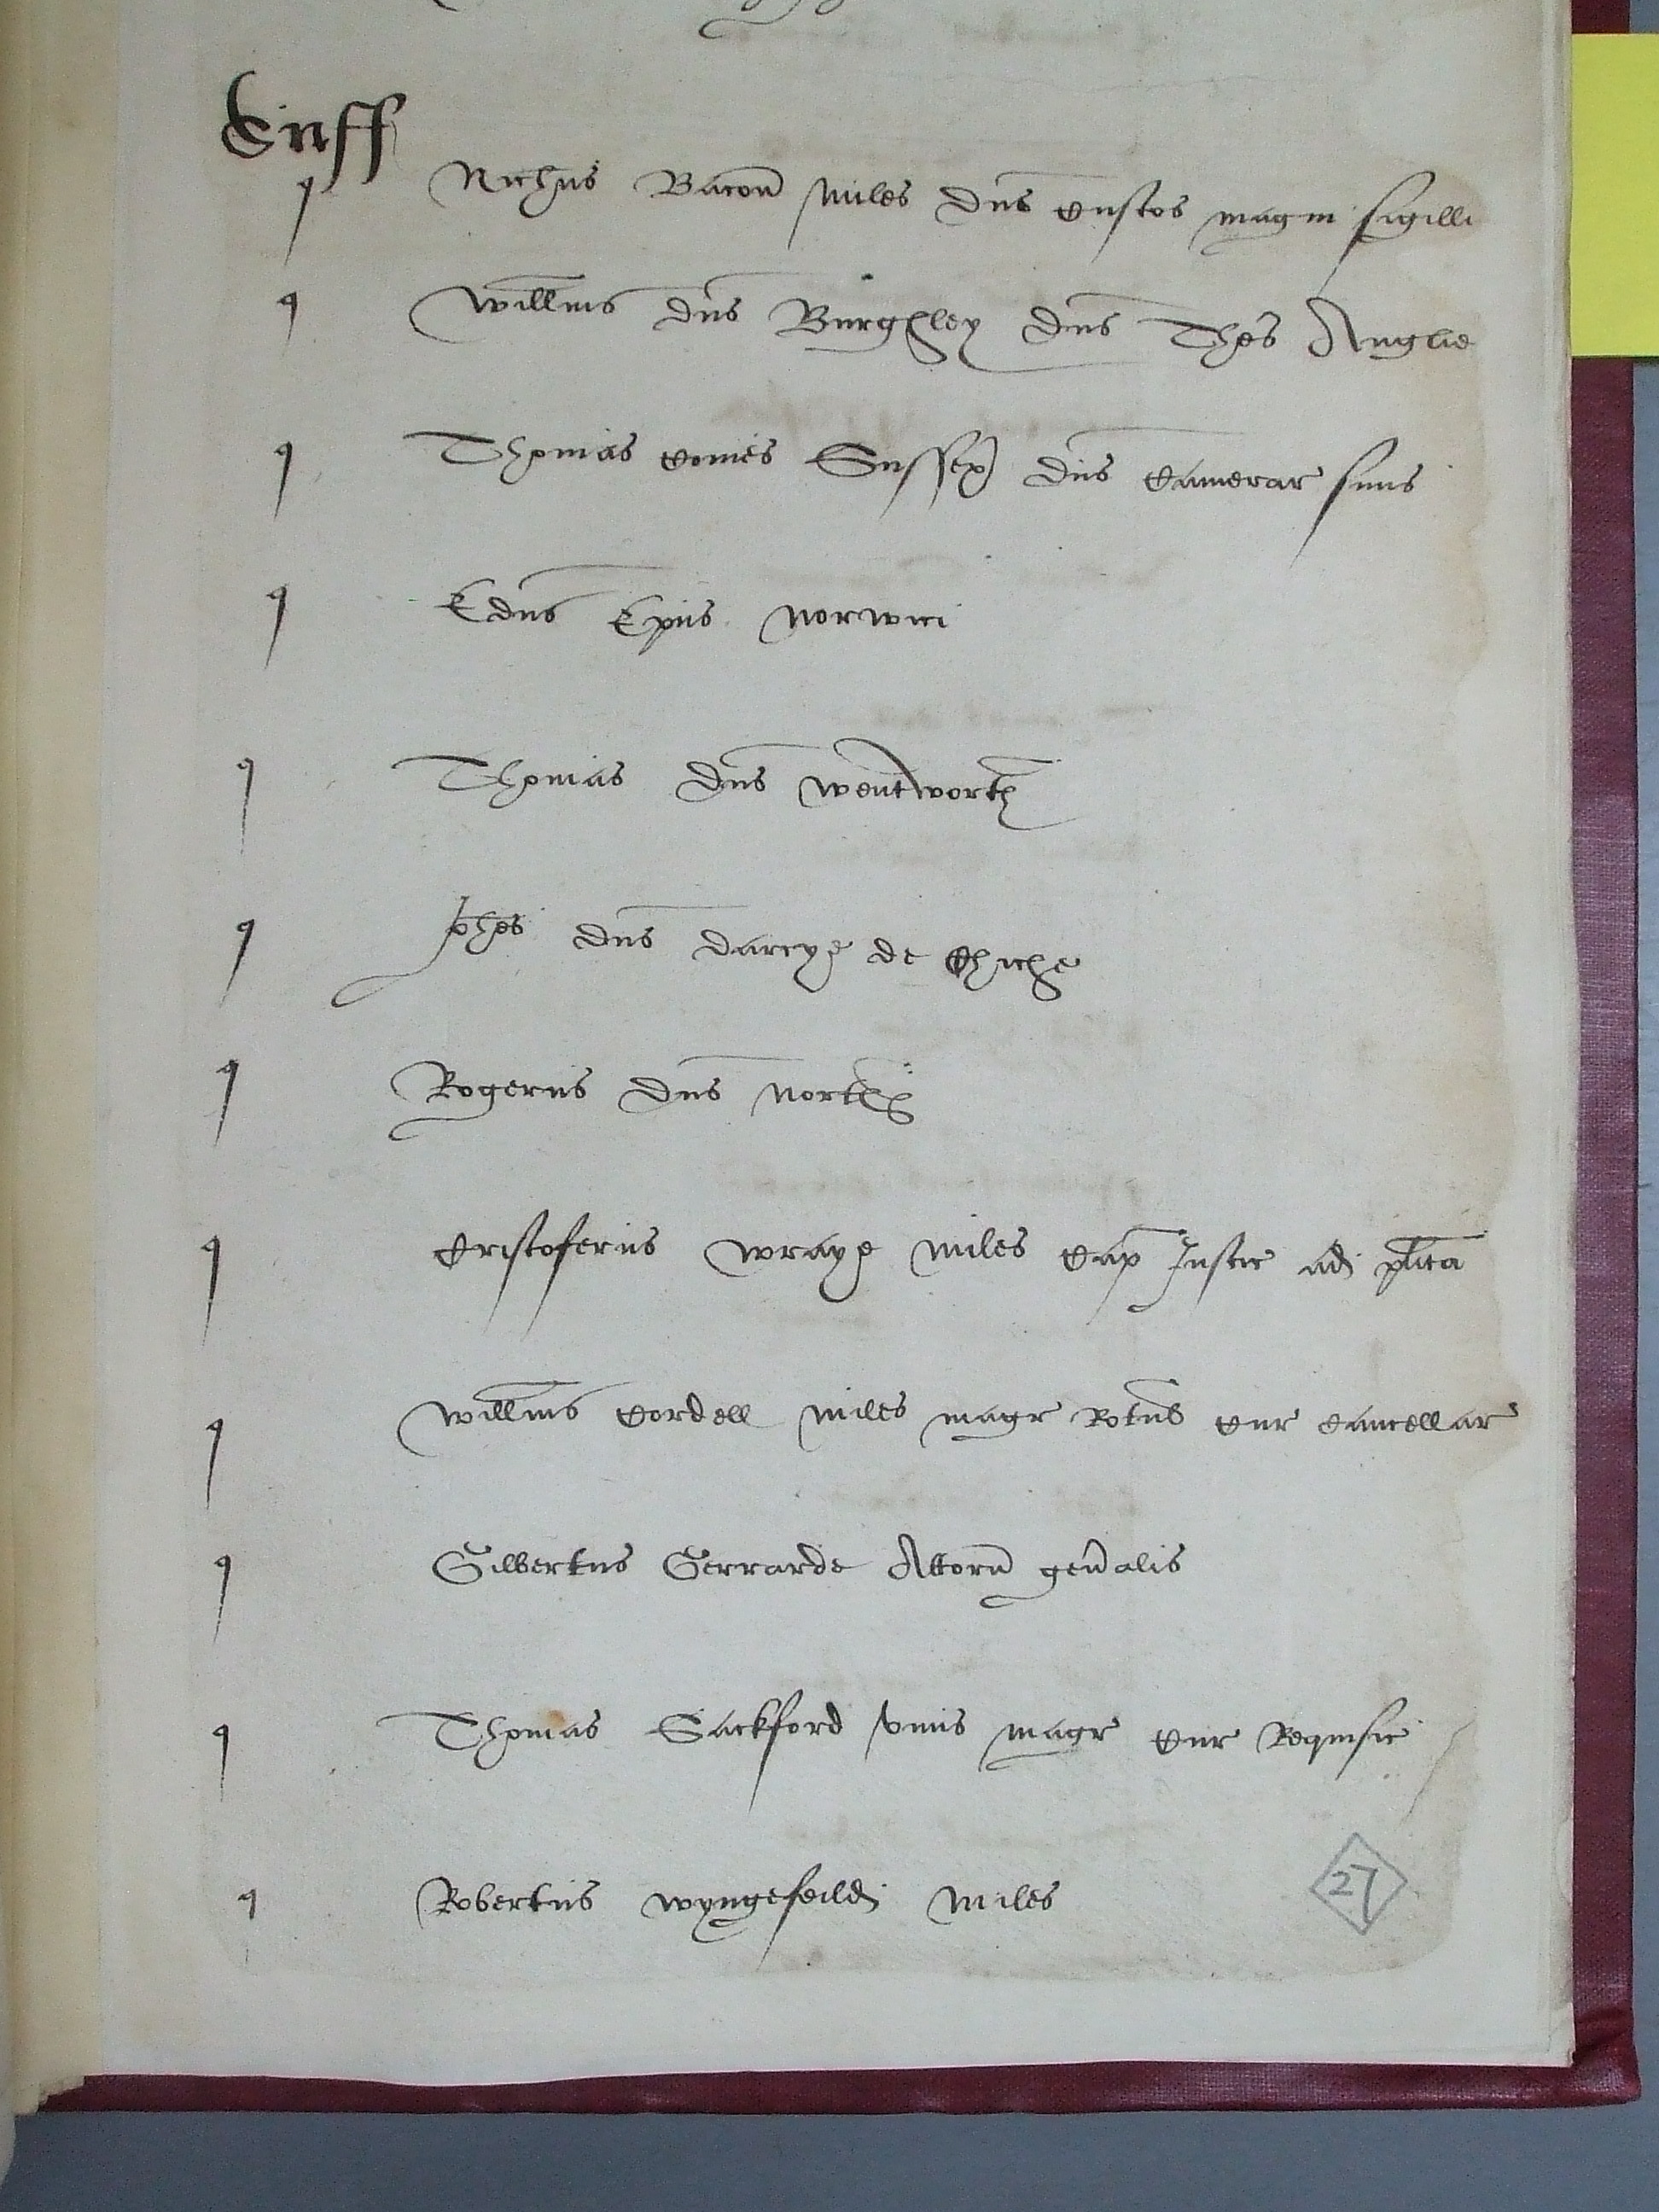 Suff
Nichus Bacon Miles Dns Custos magni sigilli
Willms Dns Burghley Dns Thes Anglie
Thomas Comes Sussex Dns Camerar suus
Edus Epus Norwici
Thomas Dns Wentworth
Johes Dns Darcye de Chiche
Rogerus Dns North
Cristoferus Wraye Miles Cap Justic ad plita
Willms Cordell Miles magr Rotulor Cur Cancellar
Gilbertus Gerrarde Attorn genalis
Thomas Sackford unus magr Cur Requisic
Robertus Wyngefeild Miles
27